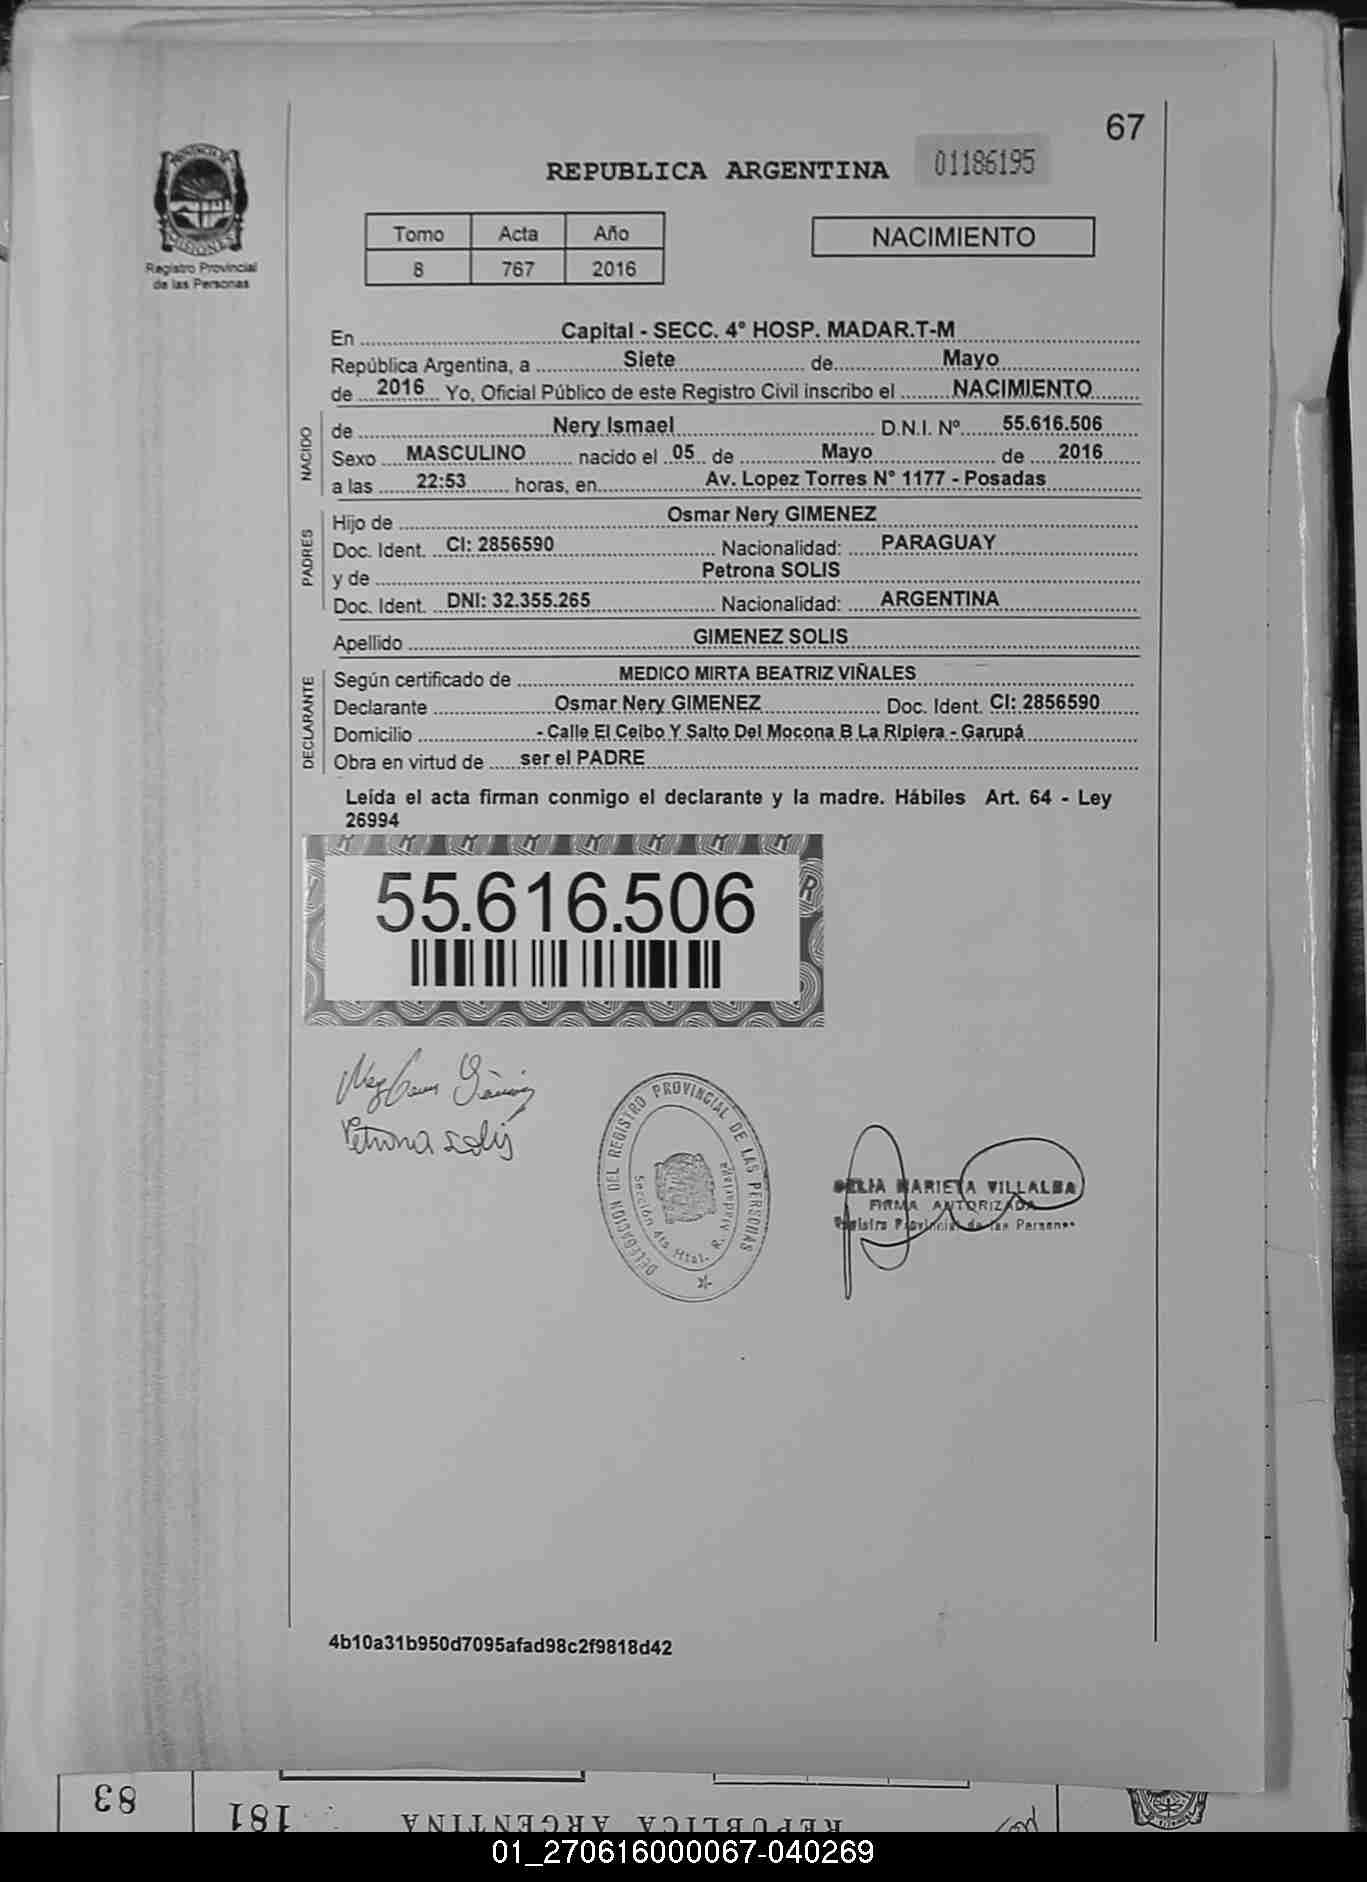 67
REPUBLICA ARGENTINA
01186195
PROVINCIA DE
MISIONES
Registro Provincial
de las Personas
Tomo Acta Año
8 767 2016
NACIMIENTO
En Capital - SECC. 4° HOSP. MADAR.T-M
República Argentina, a Siete de Mayo
de 2016 Yo, Oficial Público de este Registro Civil inscribo el NACIMIENTO
NACIDO
de Nery Ismael D.N.I. Nº 55.616.506
Sexo MASCULINO nacido el 05 de Mayo de 2016
a las 22:53 horas, en Av. Lopez Torres N° 1177 - Posadas
PADRES
Hijo de Osmar Nery GIMENEZ
Doc. Ident. CI: 2856590 Nacionalidad: PARAGUAY
y de Petrona SOLIS
Doc. Ident. DNI: 32.355.265 Nacionalidad: ARGENTINA
Apellido GIMENEZ SOLIS
DECLARANTE
Según certificado de MEDICO MIRTA BEATRIZ VIÑALES
Declarante Osmar Nery GIMENEZ Doc. Ident. CI: 2856590
Domicilio - Calle El Ceibo Y Salto Del Mocona B La Ripiera - Garupá
Obra en virtud de ser el PADRE
Leída el acta firman conmigo el declarante y la madre. Hábiles Art. 64 - Ley
26994
55.616.506
Petrona Solis
DELEGACION DEL REGISTRO PROVINCIAL DE LAS PERSONAS
Sección 4ta Htal. R. Madariaga
MARIETA VILLALBA
FIRMA AUTORIZADA
Registro Provincial de las Personas
4b10a31b950d7095afad98c2f9818d42
83
181
REPUBLICA ARGENTINA
01_270616000067-040269